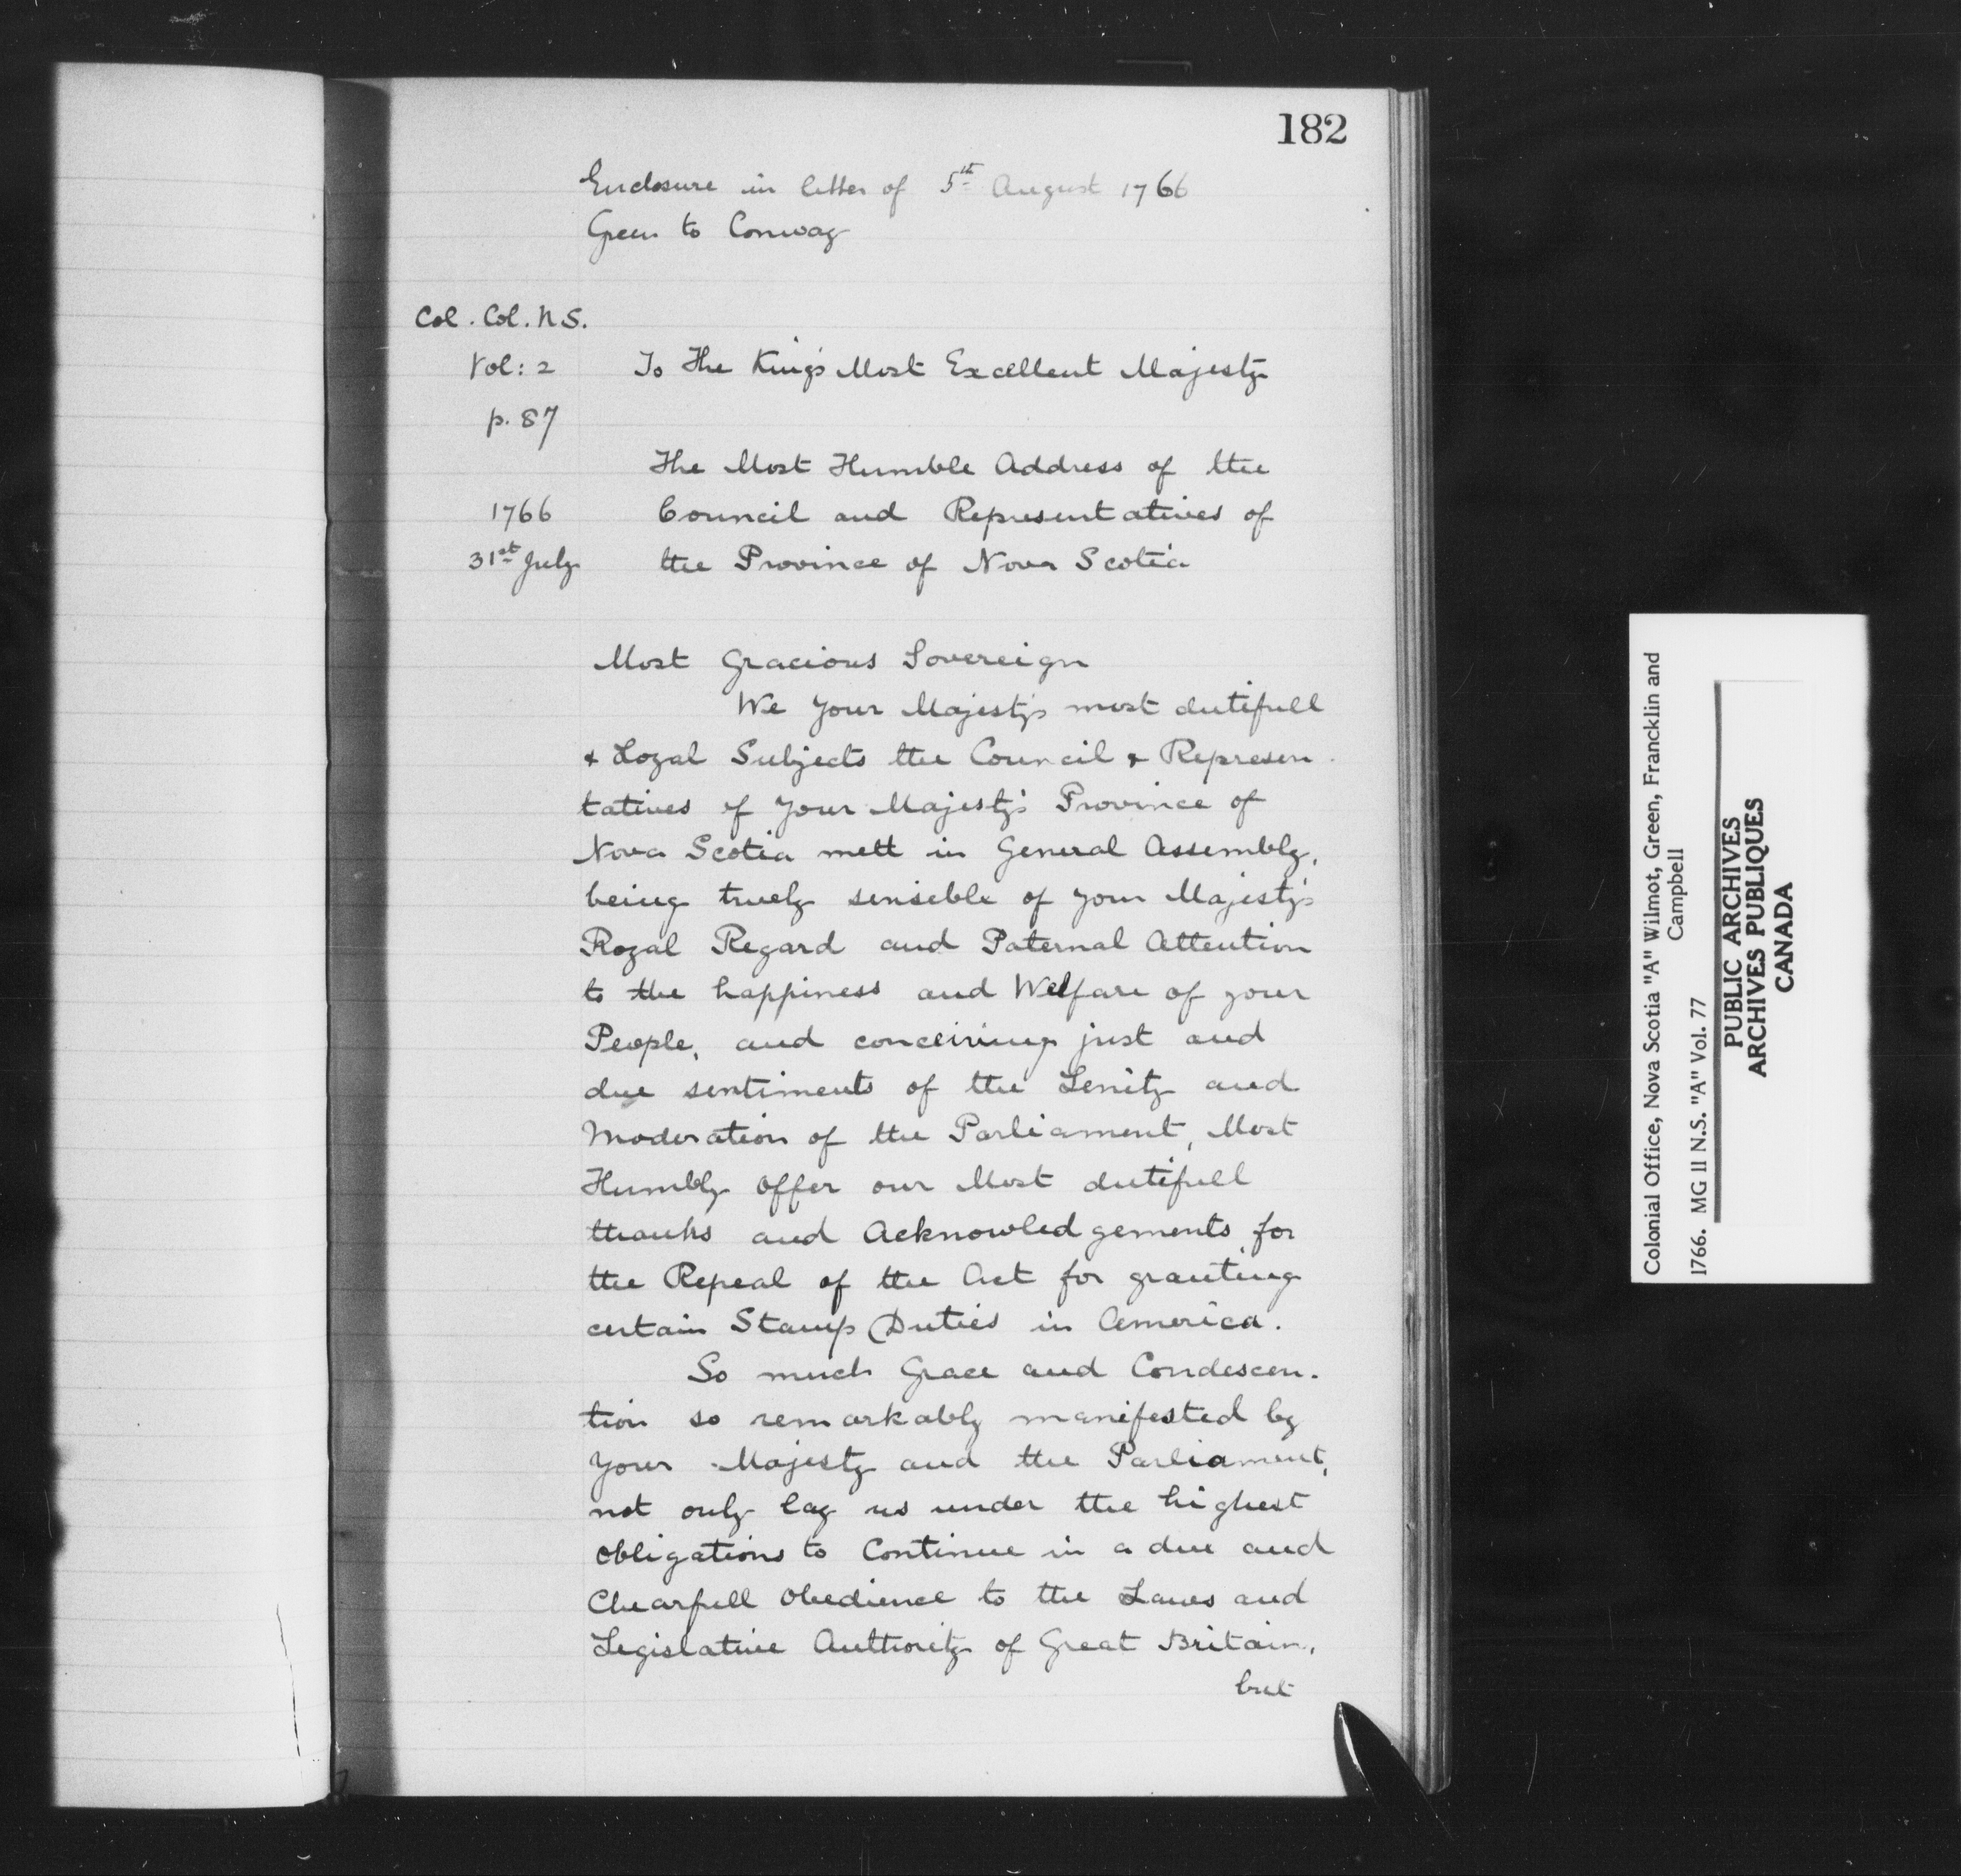 182
Enclosure in letter of 5th August 1766
Green to Conway
Col. Col. N.S.
Vol: 2
p. 87
To The King's Most Excellent Majesty
The Most Humble Address of the
Council and Representatives of
the Province of Nova Scotia
1766
31st July
Most Gracious Sovereign
We Your Majesty's most dutifull
& Loyal Subjects the Council & Represen-
tatives of Your Majesty's Province of
Nova Scotia mett in General Assembly,
being truely sensible of your Majesty's
Royal Regard and Paternal Attention
to the happiness and Welfare of your
People, and conceiving just and
due sentiments of the Lenity and
Moderation of the Parliament, Most
Humbly offer our Most dutifull
thanks and Acknowledgements for
the Repeal of the Act for granting
certain Stamp Duties in America.
So much Grace and Condescen-
tion so remarkably manifested by
Your Majesty and the Parliament,
not only lay us under the highest
Obligations to Continue in a due and
Chearfull Obedience to the Laws and
Legislative Authority of Great Britain,
but
Colonial Office, Nova Scotia "A" Wilmot, Green, Francklin and
Campbell
1766. MG 11 N.S. "A" Vol. 77
PUBLIC ARCHIVES
ARCHIVES PUBLIQUES
CANADA